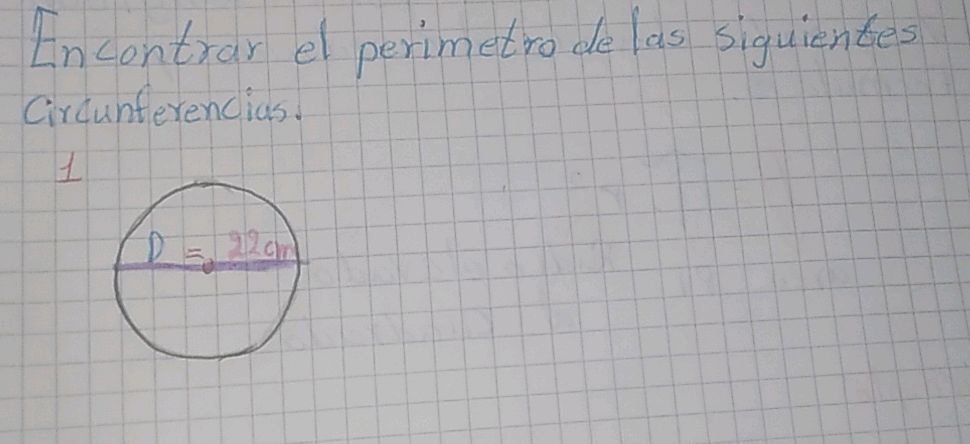 Encontrar el perimetro de las siguientes
Circunferencias.
1
D = 22cm